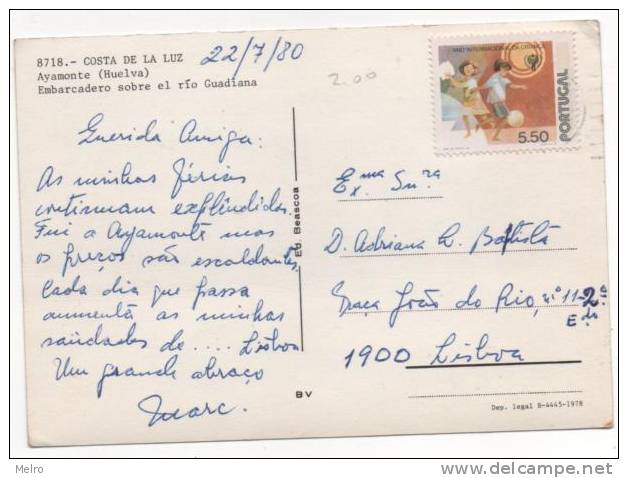 8718.- COSTA DE LA LUZ
Ayamonte (Huelva)
Embarcadero sobre el río Guadiana
22/7/80
2.00
Querida Amiga:
As minhas férias
continuam explêndidas.
Fui a Ayamonte mas
os preços são escaldantes,
Cada dia que passa
aumenta as minhas
saudades de.... Lisboa
Um grande abraço
Marc.
Ed. Beascoa
BV
ANO INTERNACIONAL DA CRIANÇA
PORTUGAL
5.50
Exma Snra
D. Adriana L. Baptista
Praça João do Rio, nº 11-2º
Edo
1900 Lisboa
Dep. legal B-4445-1978
Melro
http://www.delcampe.net